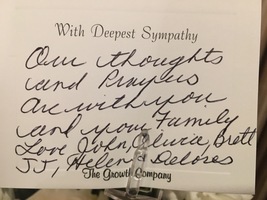 With Deepest Sympathy
Our thoughts
and Prayers
are with you
and your Family
Love John, Olivia, Brett
JJ, Helen Delores
The Growth Company